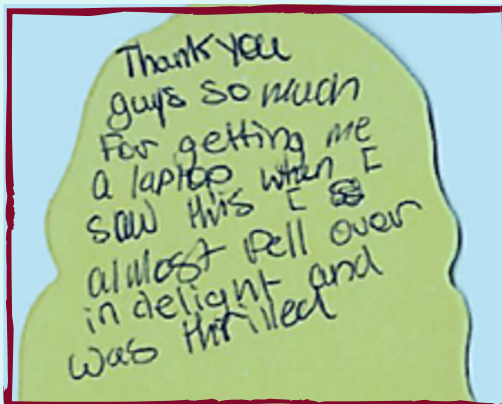 Thank you
guys so much
For getting me
a laptop when I
saw this I
almost fell over
in delight and
was thrilled